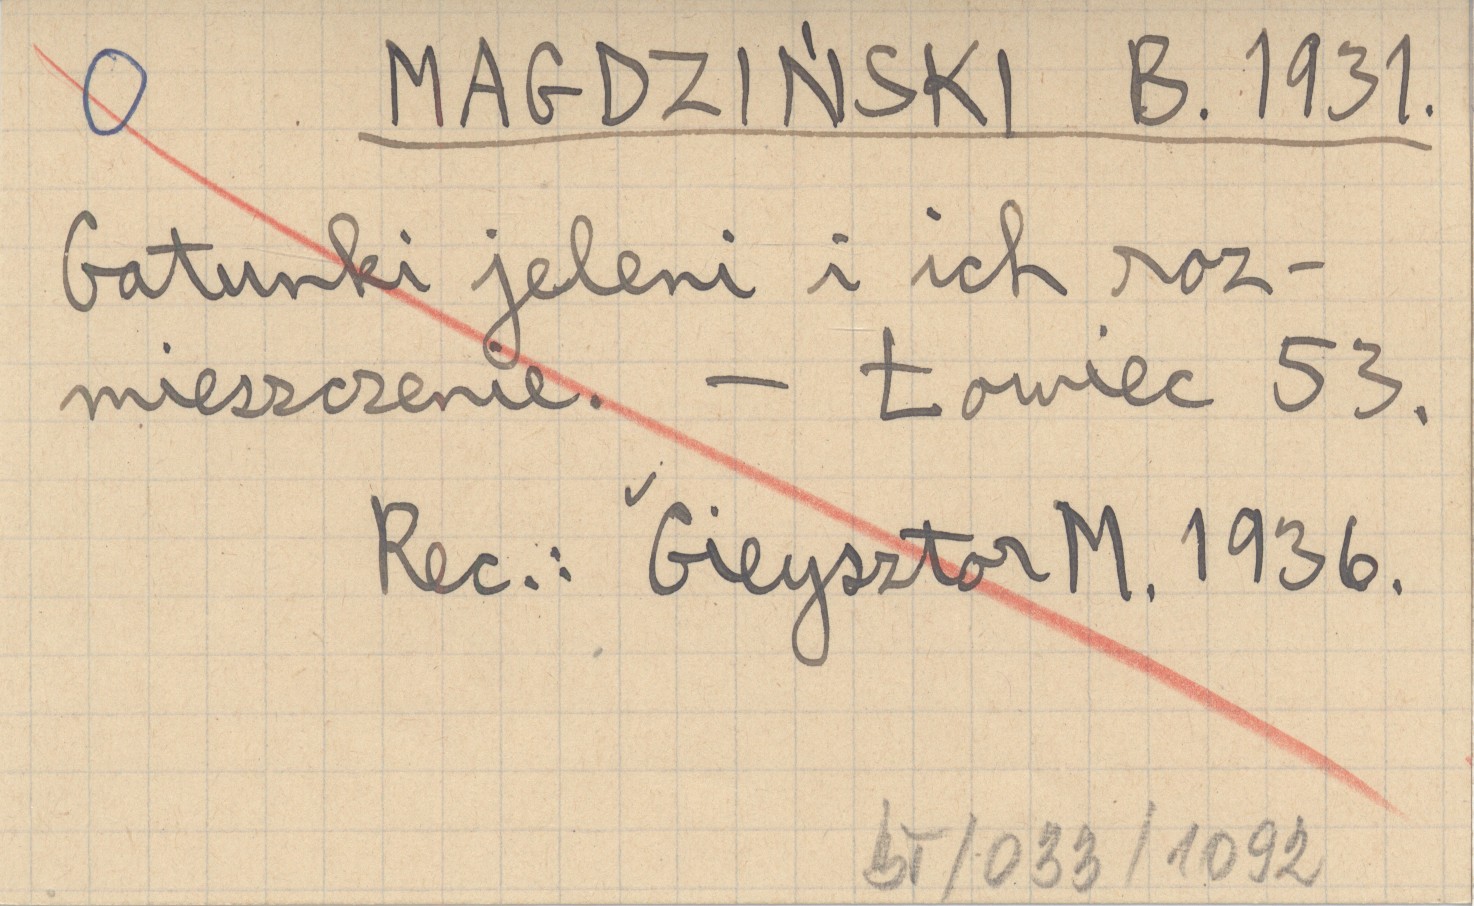 O MAGDZIŃSKI B. 1931.
Gatunki jeleni i ich roz-
mieszczenie. — Łowiec 53.
Rec.: ˇGieysztor M. 1936.
/033/1092